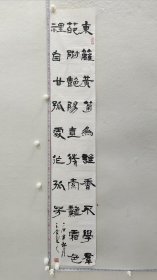 東籬黃菊為誰香不學羣
葩附艷陽直待素秋霜色
裡自甘孤處作孤芳